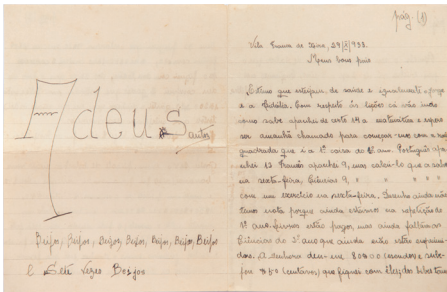 Adeus
Beijos, Beijos, Beijos, Beijos, Beijos, Beijos, Beijos
e Sete Vezes Beijos
pág. (1)
Vila Franca de Xira, 29/X/938.
Meus bons pais
Estimo que estejam de saúde e igualmente
e a Eulália. Com respeito às lições cá vão indo
como sabe apanhei de certo 14 a matemática e espero
ser amanhã chamado para começar-mos com a raiz
quadrada que é a 1ª coisa do 2º ano. Português apa-
nhei 12 Francês apanhei 9, mas calai-lo que a sabe
na sexta-feira, Ciências 9, " " " "
com um exercício na sexta-feira. Desenho ainda não
temos nota porque ainda estamos na repetição do
1º ano. livros estão pagos, mas ainda faltam as
Ciências do 2º ano que ainda não estão
A senhora deu-me 80$00 (escudos) e
$50 (centavos) que fiquei com eles dos